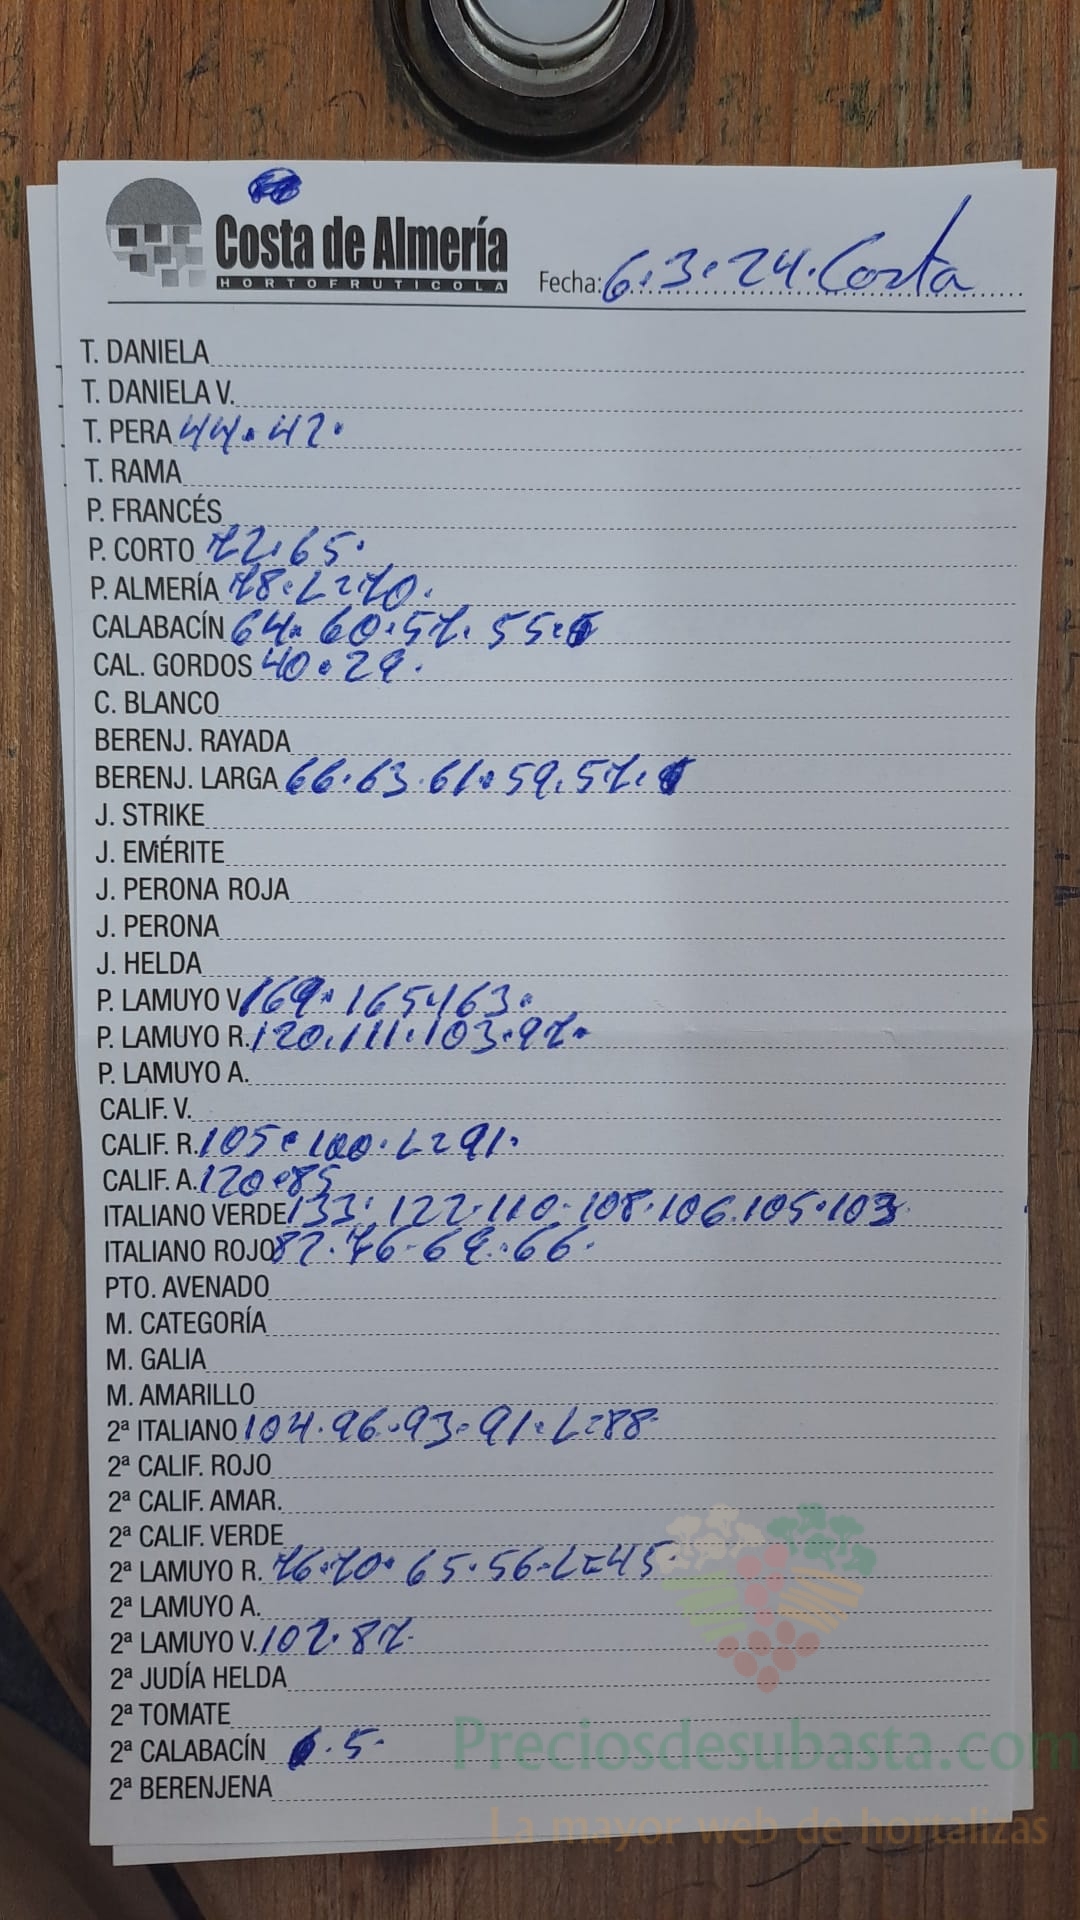 Costa de Almería
HORTOFRUTICOLA
Fecha: 6.3.24. Costa
T. DANIELA
T. DANIELA V.
T. PERA 44.42.
T. RAMA
P. FRANCÉS
P. CORTO 72.65.
P. ALMERÍA 78.L=70.
CALABACÍN 64.60.57.55.
CAL. GORDOS 40.29.
C. BLANCO
BERENJ. RAYADA
BERENJ. LARGA 66.63.61.59.57.
J. STRIKE
J. EMÉRITE
J. PERONA ROJA
J. PERONA
J. HELDA
P. LAMUYO V. 169.165.163.
P. LAMUYO R. 120.111.103.97.
P. LAMUYO A.
CALIF. V.
CALIF. R. 105.100.L=91.
CALIF. A. 120.85
ITALIANO VERDE 133.122.110.108.106.105.103
ITALIANO ROJO 82.76.69.66.
PTO. AVENADO
M. CATEGORÍA
M. GALIA
M. AMARILLO
2ª ITALIANO 104.96.93.91.L=88
2ª CALIF. ROJO
2ª CALIF. AMAR.
2ª CALIF. VERDE
2ª LAMUYO R. 76.70.65.56.L=45
2ª LAMUYO A.
2ª LAMUYO V. 102.87.
2ª JUDÍA HELDA
2ª TOMATE
2ª CALABACÍN .5.
2ª BERENJENA
Preciosdesubasta.com
La mayor web de hortalizas